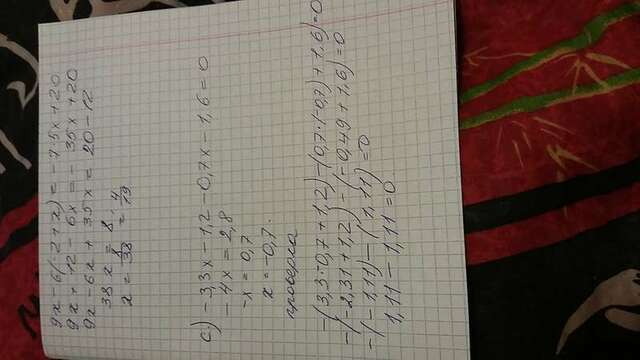 9x - 6(-2+x) = -7·5x+20
9x + 12 - 6x = - 35x +20
9x - 6x + 35x = 20 - 12
38x = 8
x = 8/38 = 4/19
c) - 3,3x - 1,2 - 0,7x - 1,6 = 0
- 4x = 2,8
-x = 0,7
x = -0,7.
проверка
-(3,3·-0,7 + 1,2) - (0,7·(-0,7) + 1,6) = 0
-(-2,31 + 1,2) - (-0,49 + 1,6) = 0
-(-1,11) - (1,11) = 0
1,11 - 1,11 = 0